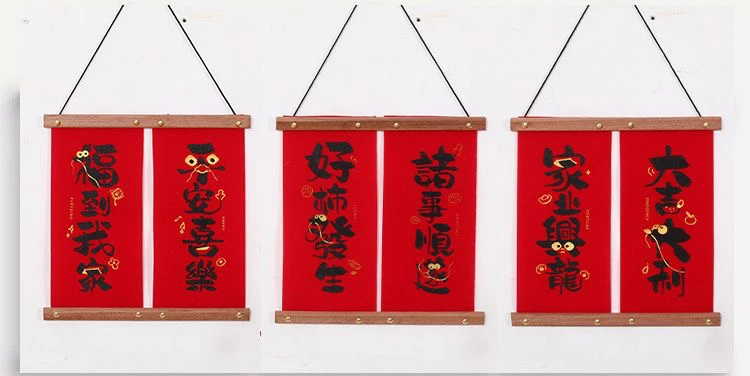 福到我家
平安喜樂
好柿發生
諸事順遂
家业興龍
大吉大利